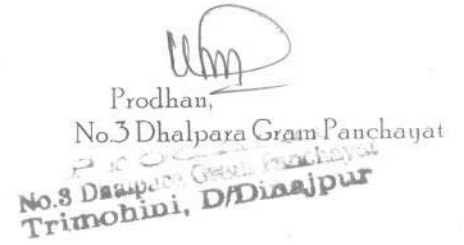 Prodhan,
No.3 Dhalpara Gram Panchayat
No.3 Gram Panchayat
Trimohini, D/Dinajpur